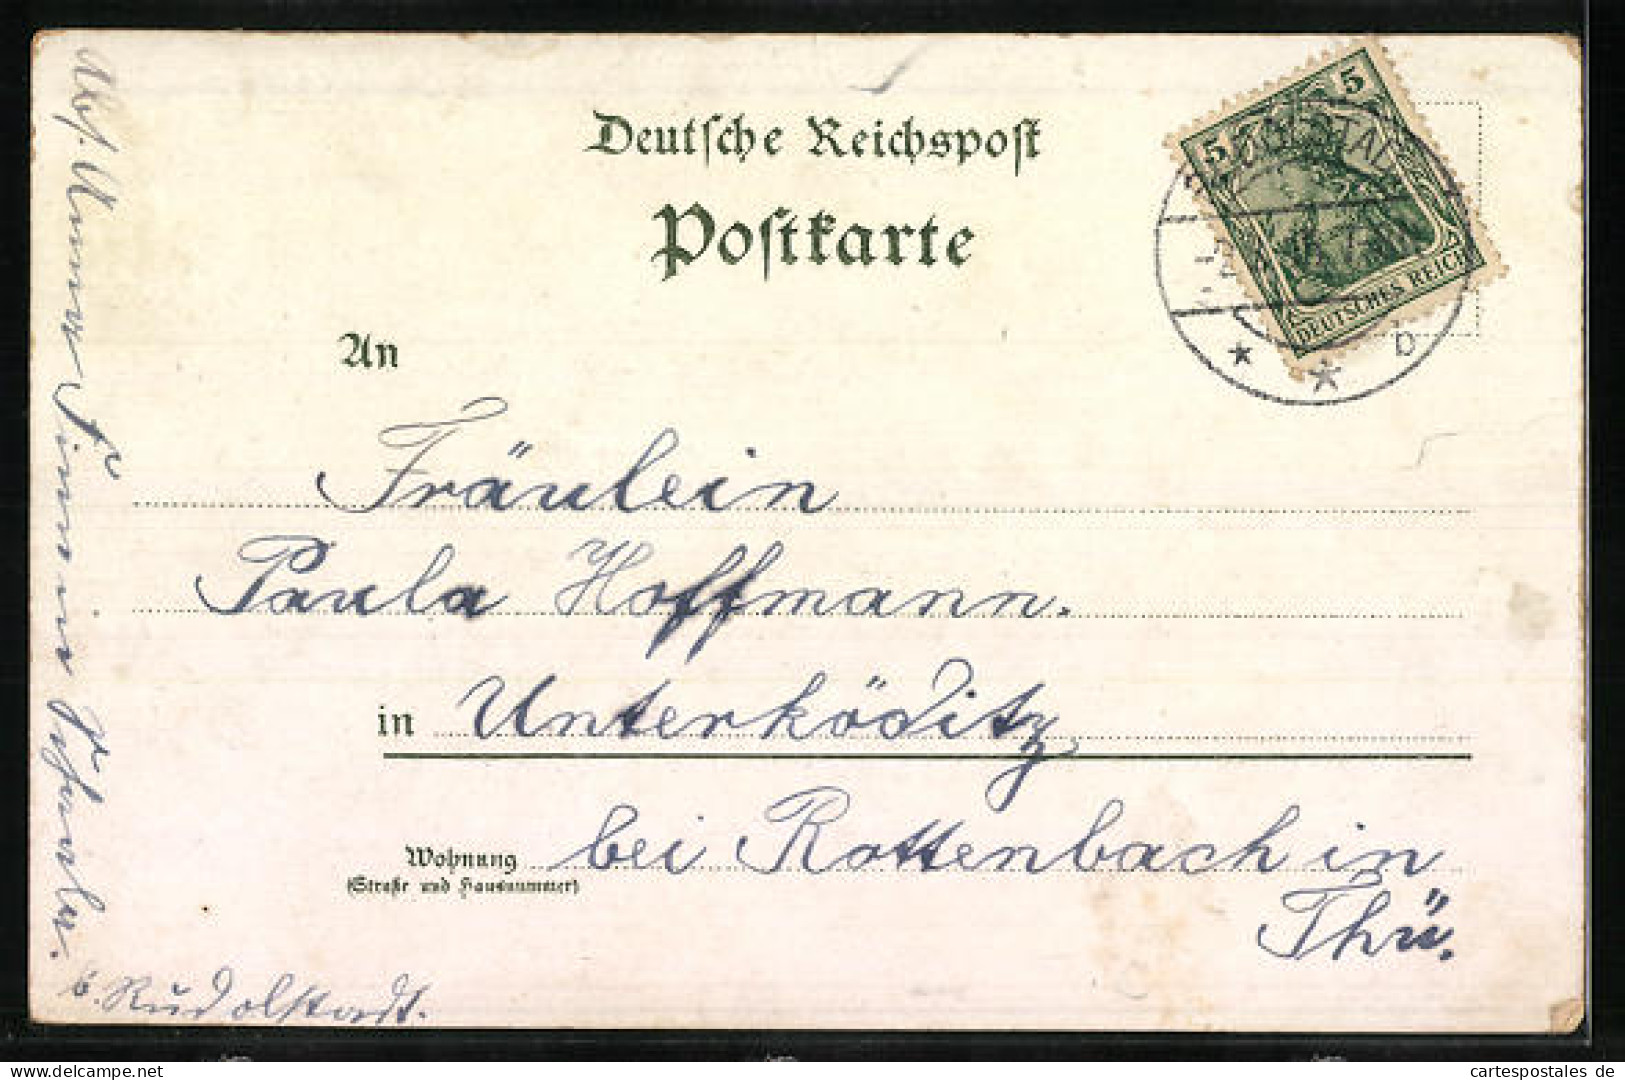 Deutsche Reichspost
Postkarte
5 5
DEUTSCHES REICH
An
Fräulein
Paula Hoffmann.
in Unterköditz
Wohnung bei Rottenbach in
(Straße und Hausnummer)
Thü.
Abs. Anna
b. Rudolstadt.
cartespostales de